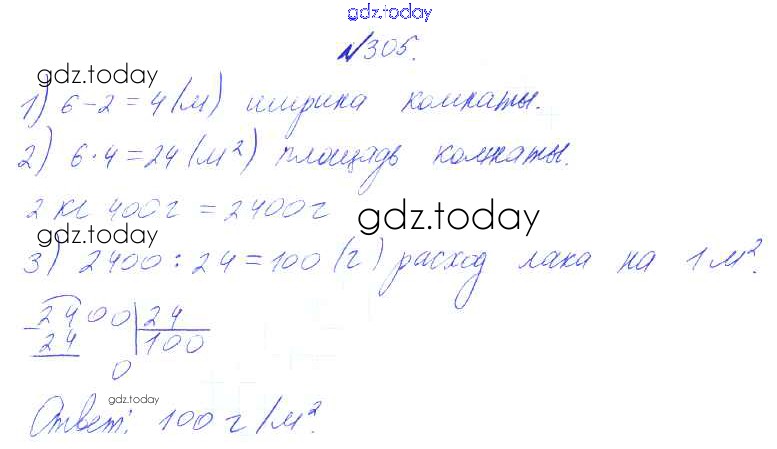 gdz.today
№305.
gdz.today
1) 6-2=4(м) ширина комнаты.
2) 6·4=24(м²) площадь комнаты.
2 кг 400г = 2400г gdz.today
3) 2400:24=100(г) расход лака на 1м².
2400 24
24 100
0
gdz.today
Ответ: 100г/м².